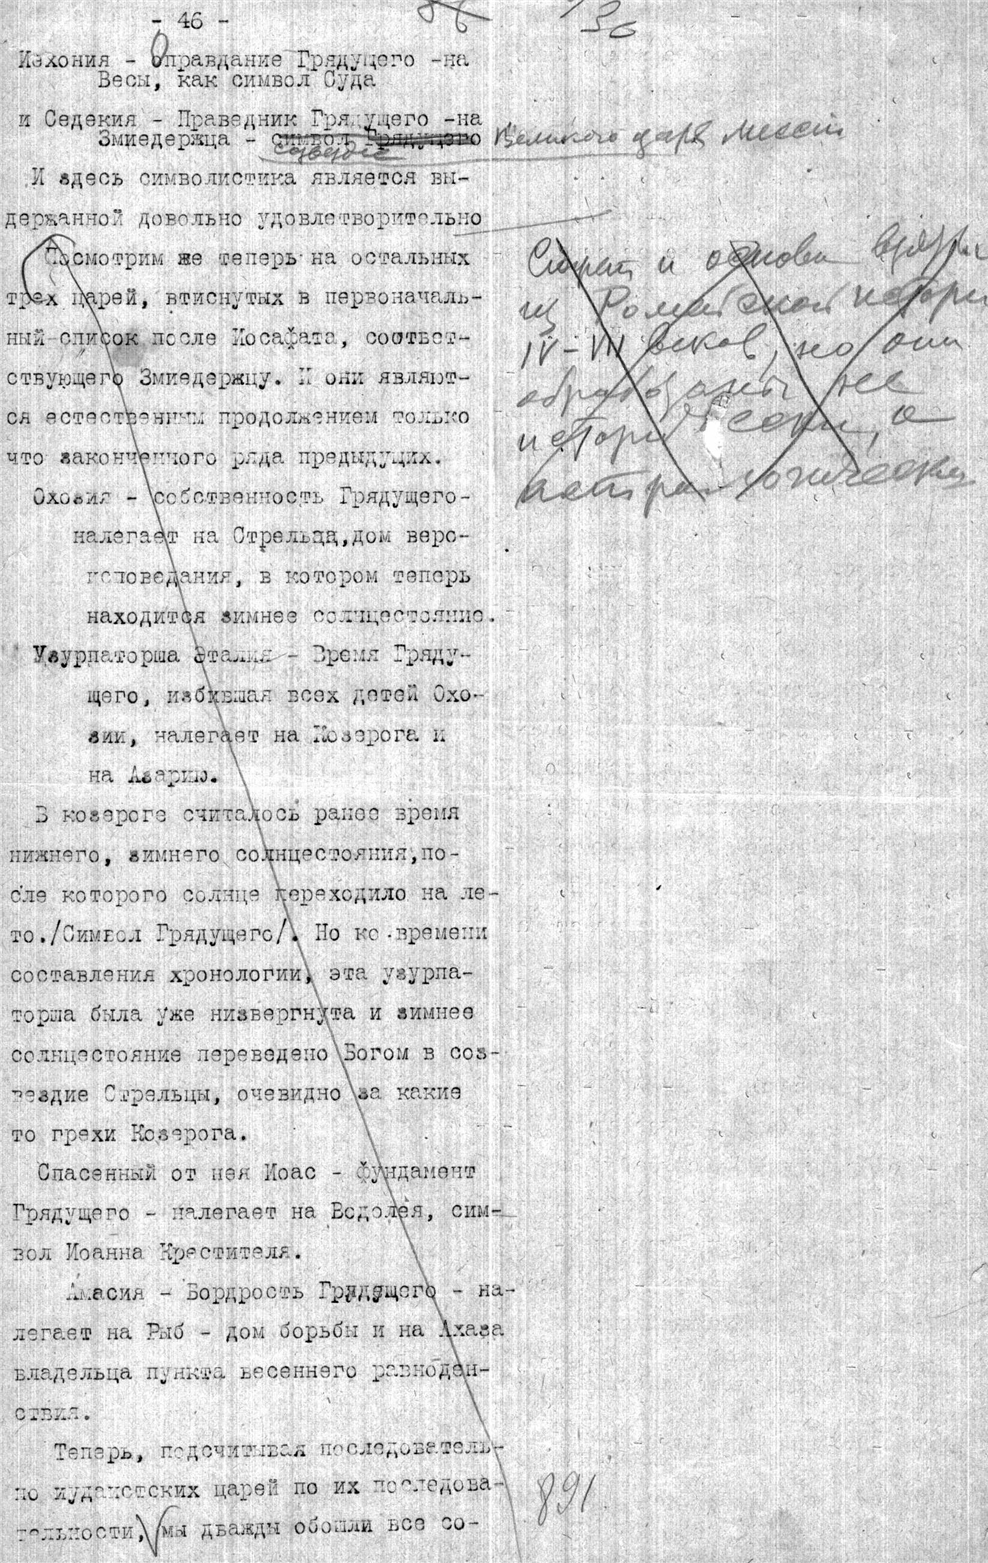 - 46 -
136
Иэхония - Оправдание Грядущего -на
Весы, как символ Суда
и Седекия - Праведник Грядущего -на
Змиедержца - символ Грядущего Великого царя Мессии
созвездие
И здесь символистика является вы-
держанной довольно удовлетворительно
Посмотрим же теперь на остальных
трех царей, втиснутых в первоначаль-
ный список после Иосафата, соответ-
ствующего Змиедержцу. И они являют-
ся естественным продолжением только
что законченного ряда предыдущих.
Охозия - собственность Грядущего-
налегает на Стрельца,дом веро-
исповедания, в котором теперь
находится зимнее солнцестояние.
Узурпаторша Эталия - Время Гряду-
щего, избившая всех детей Охо-
зии, налегает на Козерога и
на Азарию.
В козероге считалось ранее время
нижнего, зимнего солнцестояния,по-
сле которого солнце переходило на ле-
то./Символ Грядущего/. Но ко времени
составления хронологии, эта узурпа-
торша была уже низвергнута и зимнее
солнцестояние переведено Богом в соз-
вездие Стрельцы, очевидно за какие
то грехи Козерога.
Спасенный от нея Иоас - фундамент
Грядущего - налегает на Водолея, сим-
вол Иоанна Крестителя.
Амасия - Бордрость Грядущего - на-
легает на Рыб - дом борьбы и на Ахаза
владельца пункта весеннего равноден-
ствия.
Теперь, подсчитывая последователь-
но иудаистских царей по их последова-
тельности, мы дважды обошли все со-
и основа
из Ромейской истори
IV-VII веков, но они
образованы не
истори чески, а
астрал логически
891